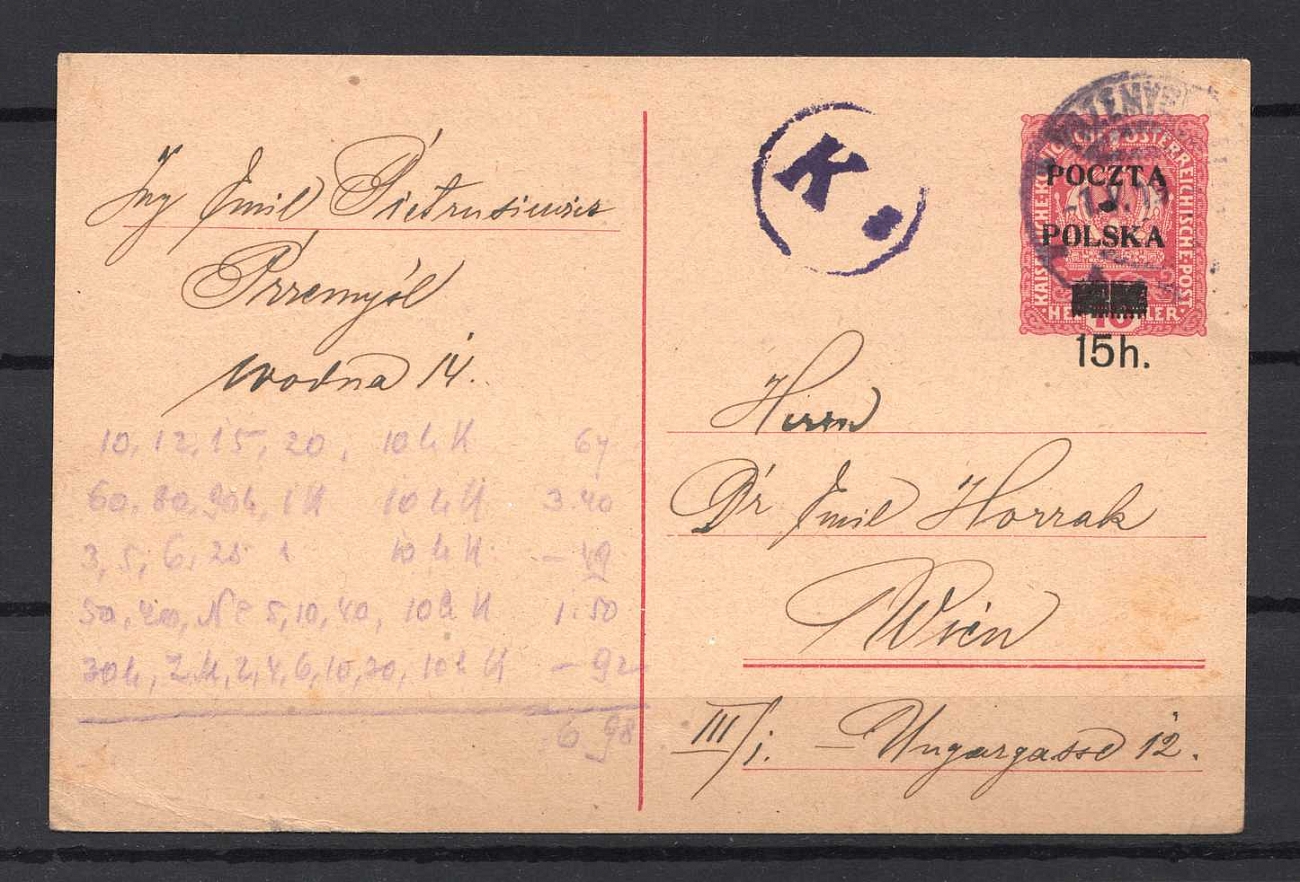 Ing Emil Pietrusiewicz
Przemyśl
wodna 14.
10, 12, 15, 20, 10 h K 67
60, 80, 90h, 1K 10 h K 3.40
3, 5, 6, 25 10 h K - 49
50, 5, 10, 40, 10 h K 1.50
30h, 2, 4, 6, 10, 20, 10 h K - 92
6 98
K.
PRZEMYŚ
KAISERLICHE KÖNIGLICHE ÖSTERREICHISCHE POST
POCZTA
POLSKA
HELLER
15h.
Herrn
Dr Emil Horrak
Wien
III/1. – Ungargasse 12.